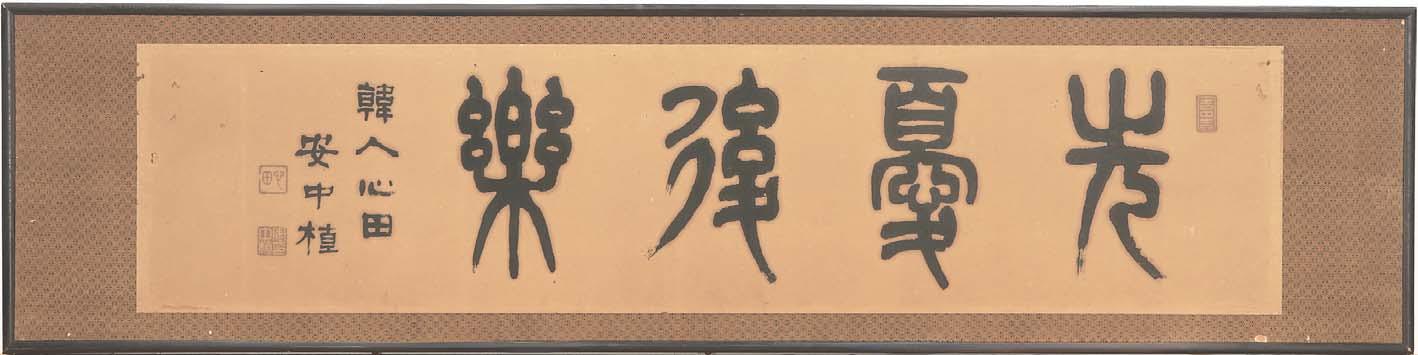 先憂後樂
韓人心田
安中植
心田